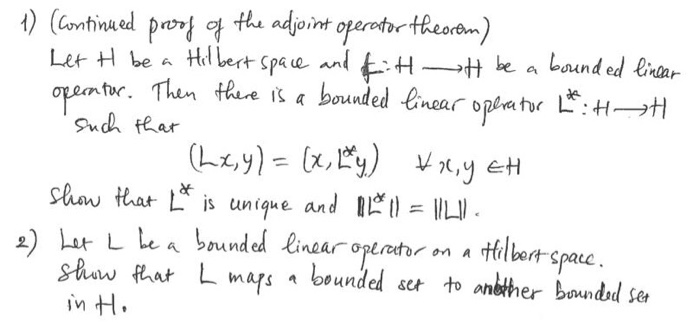 1) (Continued proof of the adjoint operator theorem)
Let H be a Hilbert space and L: H → H be a bounded linear
operator. Then there is a bounded linear operator L*: H → H
such that
(Lx, y) = (x, L*y) ∀ x, y ∈ H
show that L* is unique and ||L*|| = ||L||.
2) Let L be a bounded linear operator on a Hilbert space.
show that L maps a bounded set to another bounded set
in H.